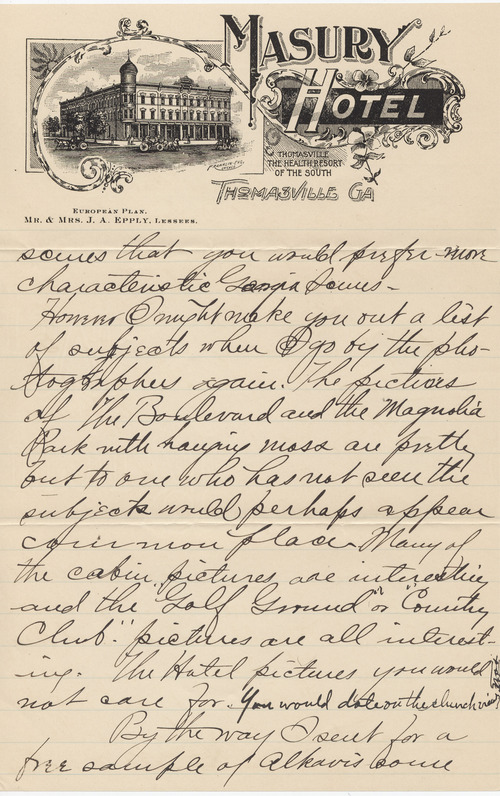 MASURY
HOTEL
THOMASVILLE
THE HEALTH RESORT
OF THE SOUTH
THOMASVILLE GA
EUROPEAN PLAN.
MR. & MRS. J. A. EPPLY, LESSEES.
scenes that you would prefer more
characteristic Georgia Scenes -
However I might make you out a list
of subjects when I go by the pho-
tographers again. The pictures
of The Boulevard and the Magnolia
Park with hanging moss are pretty
but to one who has not seen the
subjects would perhaps appear
common place. Many of
the cabin pictures are interesting
and the "Golf Ground" or "Country
Club" pictures are all interest-
ing. The Hotel pictures you would
not care for. You would dote on the church views
By the way I sent for a
free sample of Alkavis some